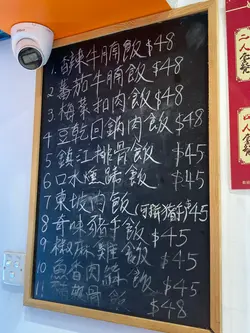 1. 醬燥牛腩飯 $48
2 番茄牛腩飯 $48
3 梅菜扣肉飯 $48
4 豆乾回鍋肉飯 $48
5 鎮江排骨飯 $45
6 口水燻蹄飯 $45
7 東坡肉飯 $45
8 奇味豬手飯 $45
9 椒麻雞飯 $45
10 魚香肉絲飯 $45
11 $48
二人
四人